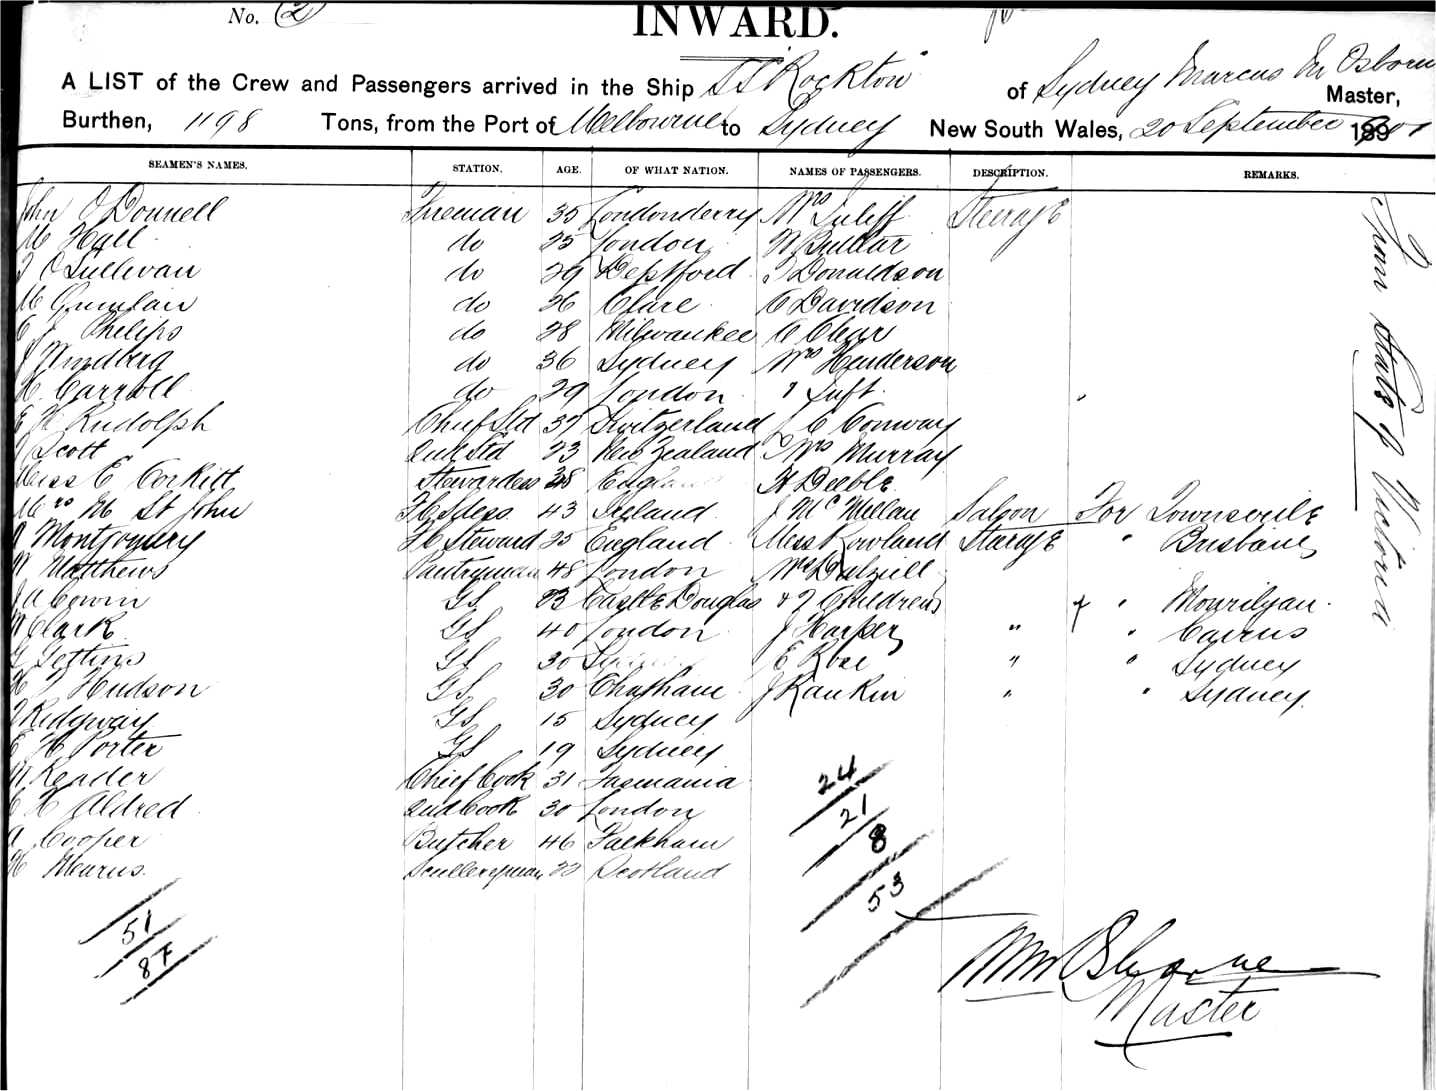 No. (2)
INWARD.
A LIST of the Crew and Passengers arrived in the Ship SS "Rockton" of Sydney Marcus M Osborn Master,
Burthen, 1198 Tons, from the Port of Melbourne to Sydney New South Wales, 20 September 1901
SEAMEN'S NAMES. STATION. AGE. OF WHAT NATION. NAMES OF PASSENGERS. DESCRIPTION. REMARKS.
John O'Donnell Fireman 35 Londonderry Mrs Steerage
M Hall do 25 London
T O'Sullivan do 29 Deptford T Donaldson
M do 26 Clare C Davidson
C J Philips do 28 Milwaukee
J Windberg do 36 Sydney Mrs Henderson
H Carroll do 29 London " Tuft
E H Rudolph Chief Std 37 Switzerland J C Conway
J Scott 2nd Std 23 New Zealand T Mrs Murray
Miss E Corkitt Stewardess 38 England H Deeble
Mrs M St John FC Stdess 43 Ireland J McMillan Saloon For Townsville
R Montgomery FC Steward 25 England Miss Rowland Steerage " Brisbane
W Matthews Pantryman 48 London Mrs Dalziell
J A Cowin GS 23 Castle Douglas & 7 Children " Mourilyan
W Clark GS 40 London J Harper " " Cairns
G Gettins GS 30 E Rose " " Sydney
H J Hudson GS 30 Chatham J Rankin " " Sydney
J Ridgway GS 15 Sydney
C H Porter GS 19 Sydney
W Reader Chief Cook 31 Tasmania
C H Aldred 2nd Cook 30 London
A Cooper Butcher 46
H Mearns Sculleryman 22 Scotland
24
21
8
53
51
87
From State of Victoria
Master